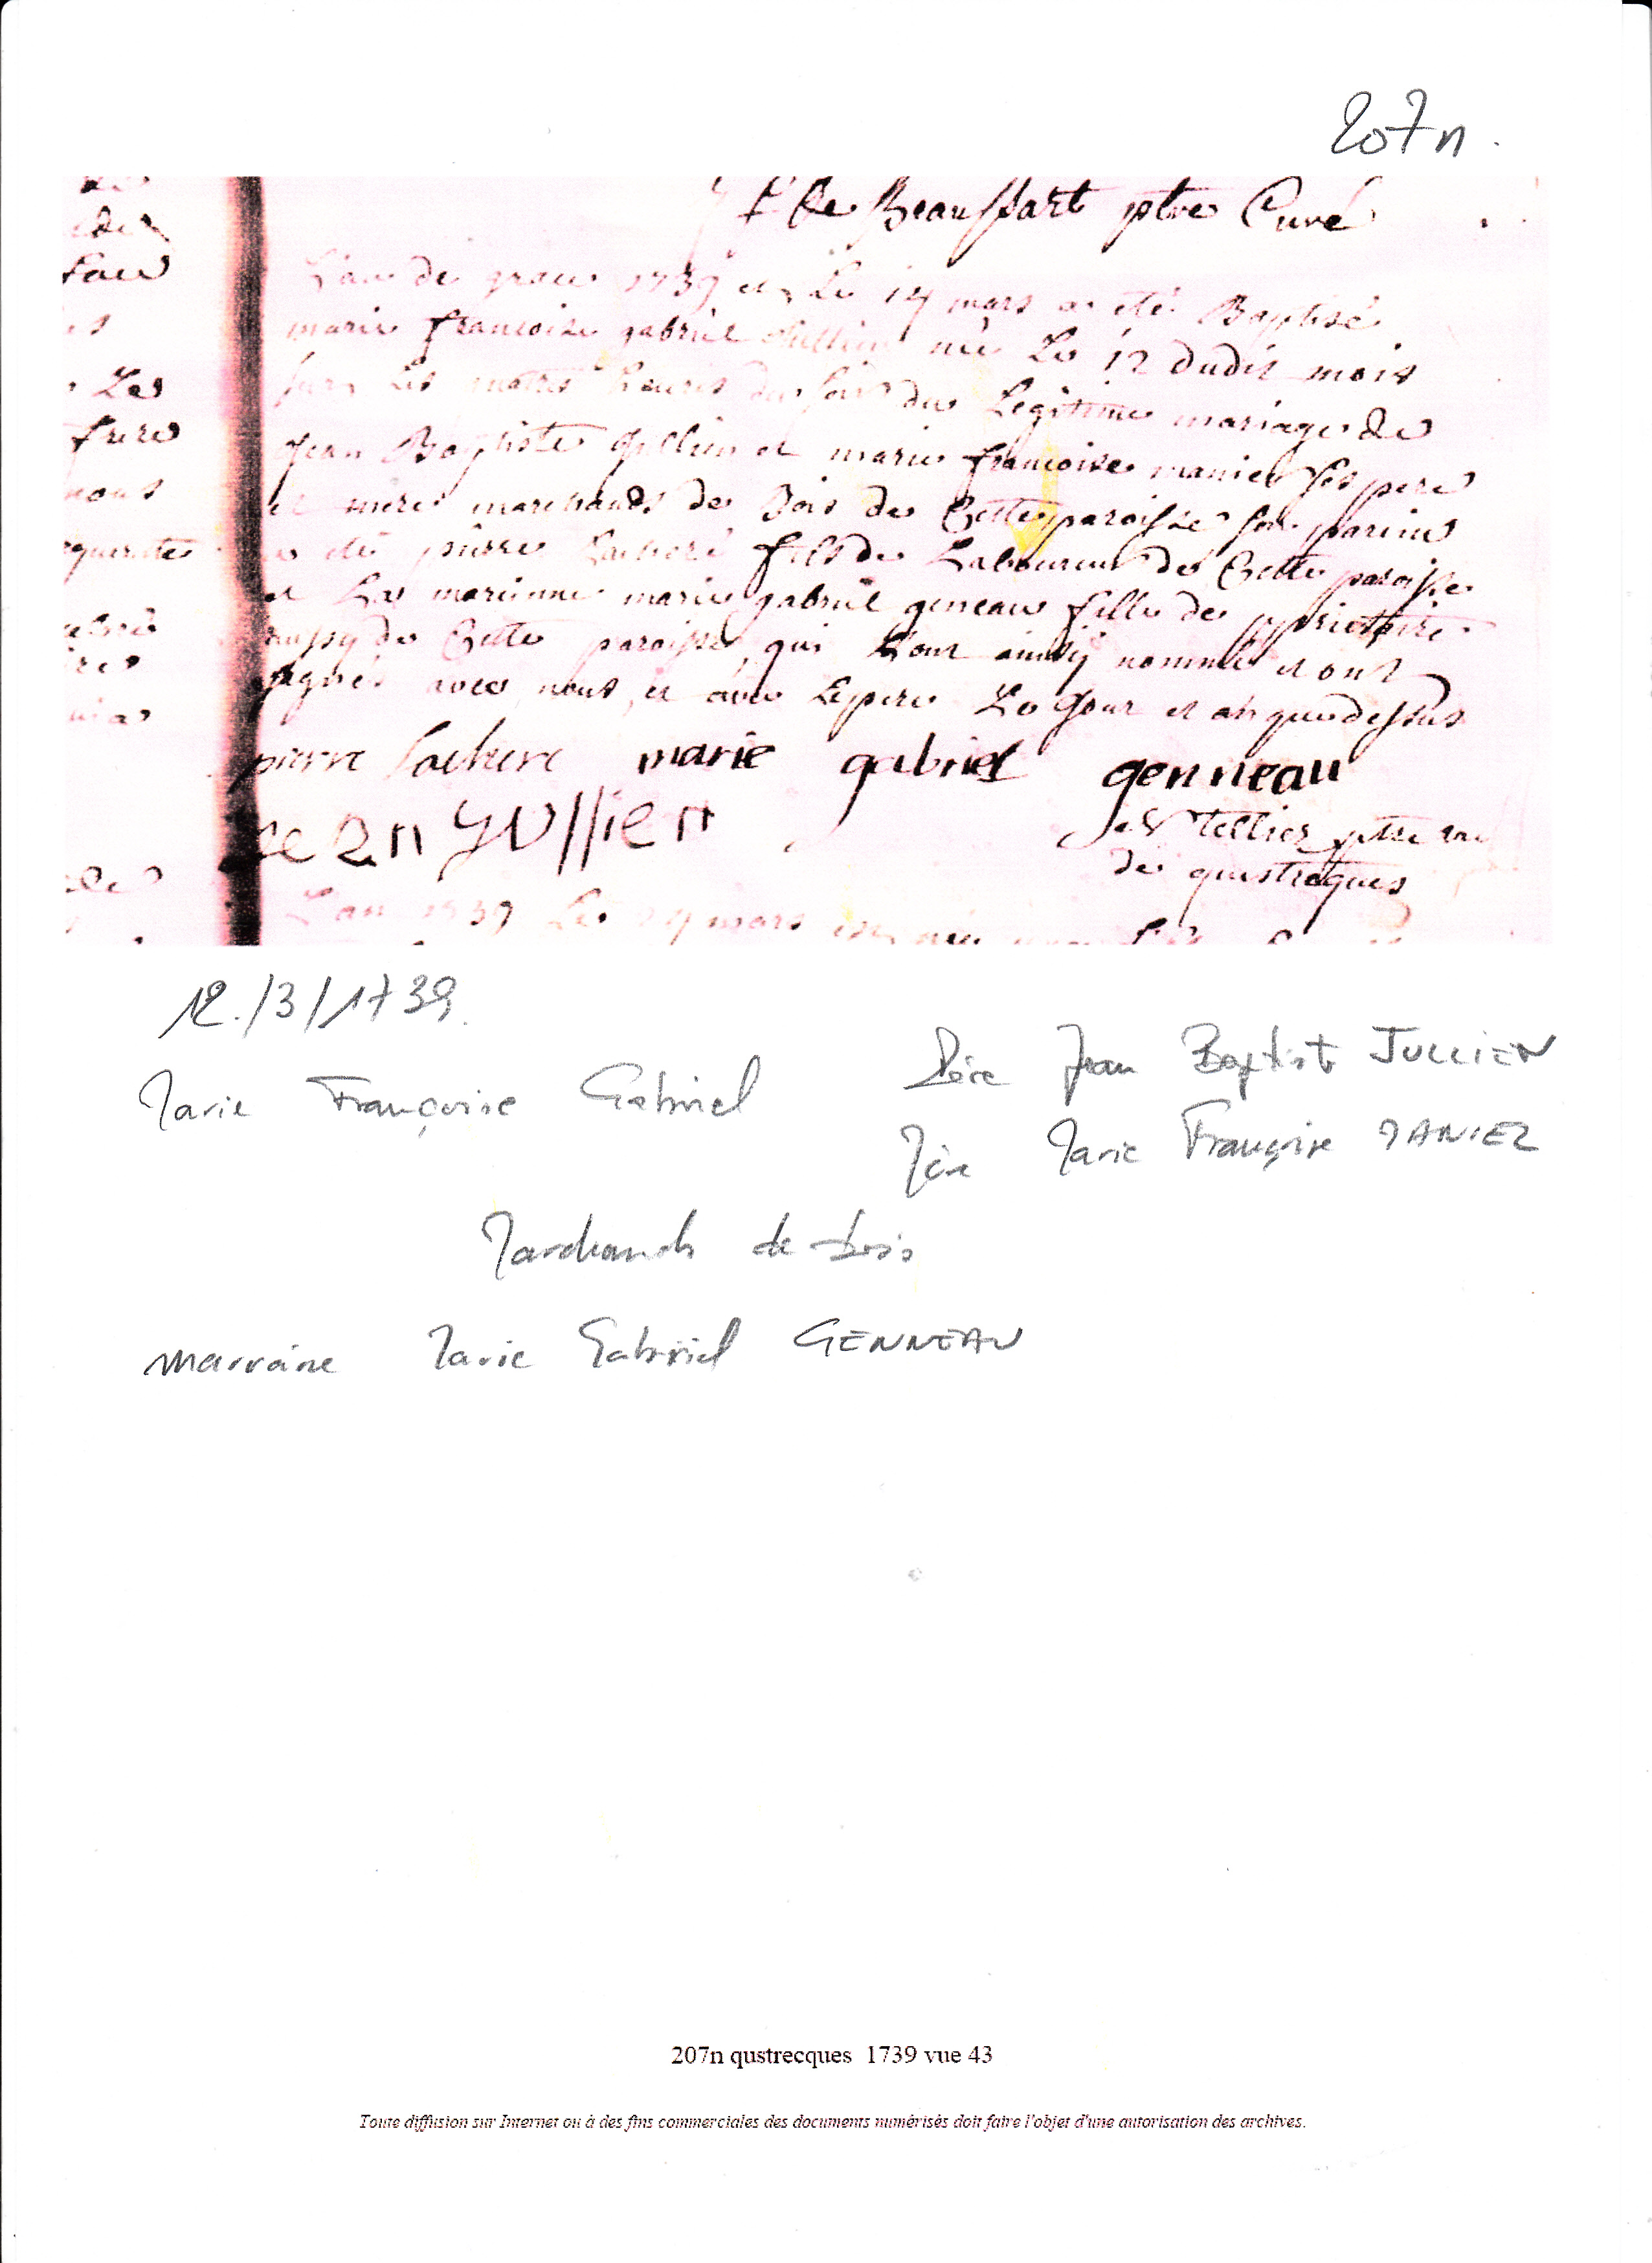 207n.
f De Beauffart ptre Curé
L'an de grace 1739 et Le 14 mars a été Baptisé
marie francoise gabriel Jullien née Le 12 dudit mois
sur les heures du soir du Legitime mariage de
Jean Baptiste Jullien et marie francoise maniez ses pere
et mere marchands de Bois de Cette paroisse son parein
a été pierre fils de Laboureur de Cette paroisse
et La mareinne marie gabriel geneau fille de
aussy de Cette paroisse, qui L'ont ainsÿ nommée et ont
signés avec nous, et avec Lepere Le Jour et an que dessus
pierre marie gabriel genneau
Jean Jullien
tellier ptre
de questreques
L'an 1739 Le mars
edes
Les
frere
nous
12./3/1739.
Marie Françoise Gabriel
Père Jean Baptiste JULLIEN
Mère Marie Françoise MANIEZ
Marchands de bois
marraine Marie Gabriel GENNEAU
207n qustrecques 1739 vue 43
Toute diffusion sur Internet ou à des fins commerciales des documents numérisés doit faire l'objet d'une autorisation des archives.